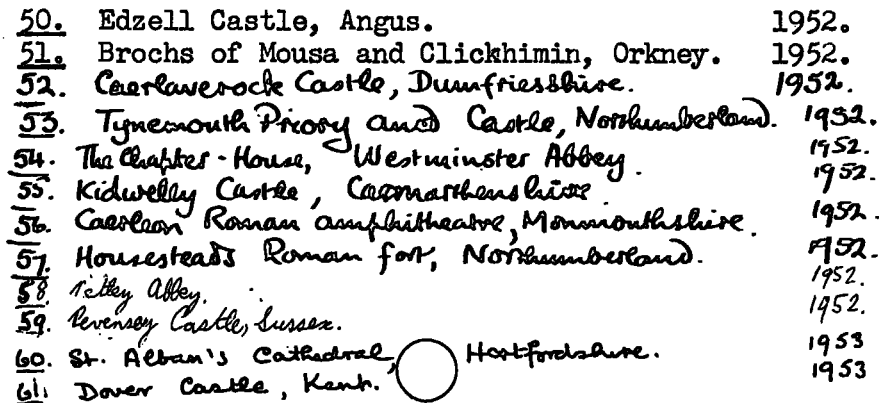 50. Edzell Castle, Angus. 1952.
51. Brochs of Mousa and Clickhimin, Orkney. 1952.
52. Caerlaverock Castle, Dumfriesshire. 1952.
53. Tynemouth Priory and Castle, Northumberland. 1952.
54. The Chapter-House, Westminster Abbey. 1952.
55. Kidwelly Castle, Caermarthenshire. 1952.
56. Caerleon Roman amphitheatre, Monmouthshire. 1952.
57. Housesteads Roman fort, Northumberland. 1952.
58 Netley Abbey. 1952.
59. Pevensey Castle, Sussex. 1952.
60. St. Alban's Cathedral, Hertfordshire. 1953
61. Dover Castle, Kent. 1953